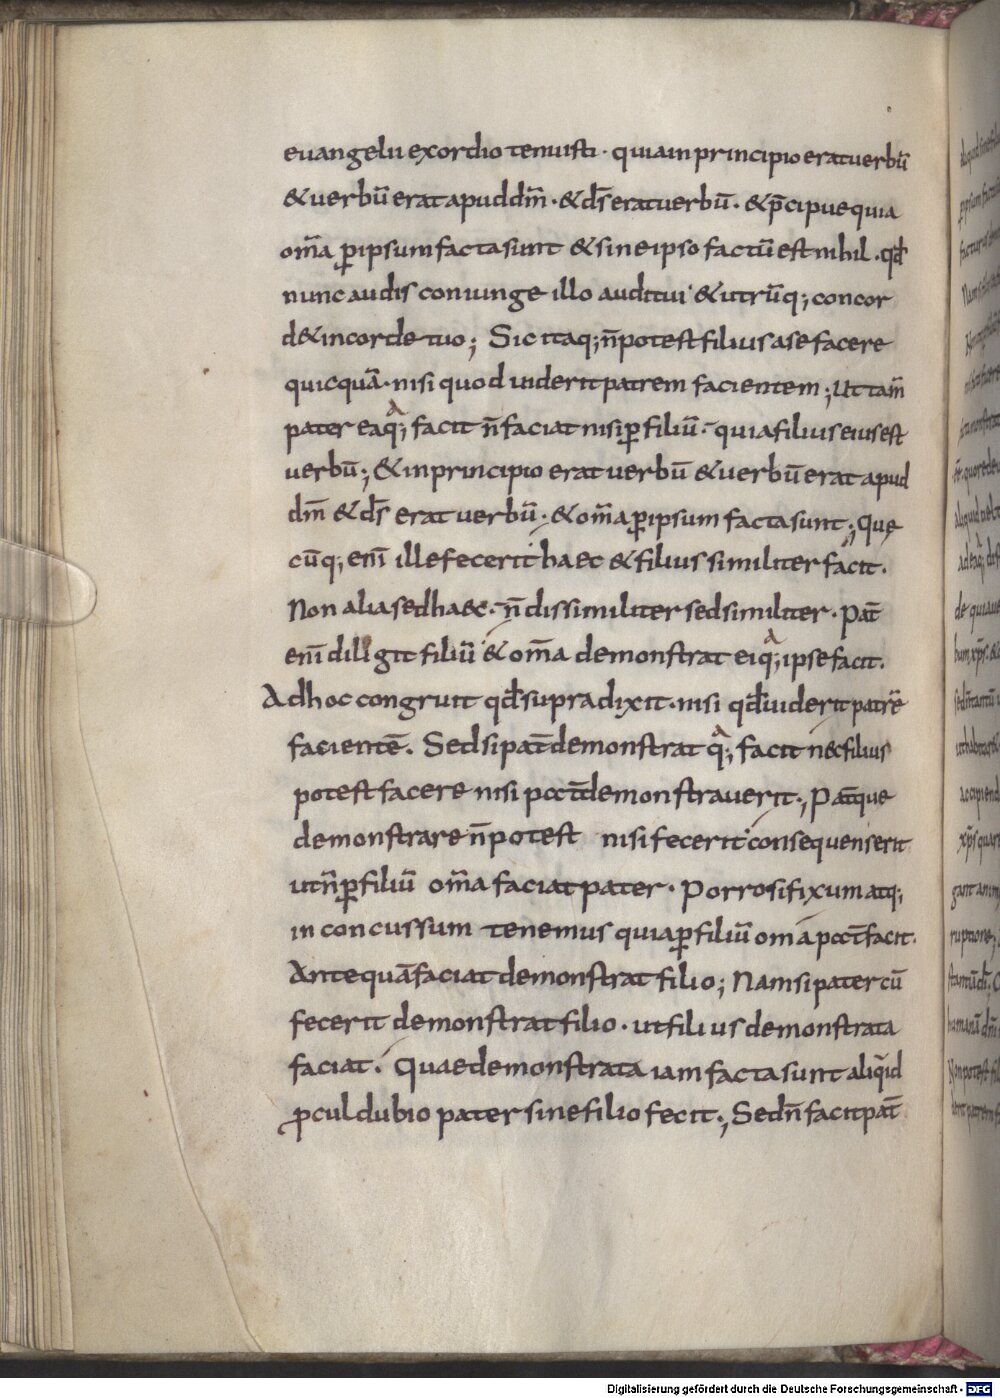 euangelii exordio tenuisti · quia in principio erat uerbū
& uerbū erat apud dm̄ · & ds̄ erat uerbū · & p̄cipue quia
om̄a ꝑ ipsum facta sunt & sine ipso factū est nihil · qđ
nunc audis coniunge illo auditui & utrūq; concor
d& in corde tuo ; Sic itaq; n̄ potest filius a se facere
quicquā · nisi quod uiderit patrem facientem ; Ut tam̄
pater ea q̄; facit n̄ faciat nisi ꝑ filiū · quia filius eius est
uerbū ; & in principio erat uerbū & uerbū erat apud
dm̄ & ds̄ erat uerbū · & om̄a ꝑ ipsum facta sunt ; Que
cūq; eni ille fecerit haec & filius similiter facit .
Non alia sed haec · n̄ dissimiliter sed similiter · Pat̄
eni diligit filiū & om̄a demonstrat ei q̄; ipse facit .
Ad hoc congruit qđ supra dixit · nisi qđ uiderit patrē
facientē . Sed si pat̄ demonstrat q̄; facit nec filius
potest facere nisi pat̄ demonstrauerit ·, Pat̄ que
demonstrare n̄ potest nisi fecerit consequens erit
ut n̄ ꝑ filiū om̄a faciat pater · Porro si fixum atq;
inconcussum tenemus quia ꝑ filiū om̄a pat̄ facit .
Antequā faciat demonstrat filio ; Nam si pater cū
fecerit demonstrat filio · ut filius demonstrata
faciat . Quae demonstrata iam facta sunt aliqid
ꝓcul dubio pater sine filio fecit ·, Sed n̄ facit pat̄
Digitalisierung gefördert durch die Deutsche Forschungsgemeinschaft - DFG